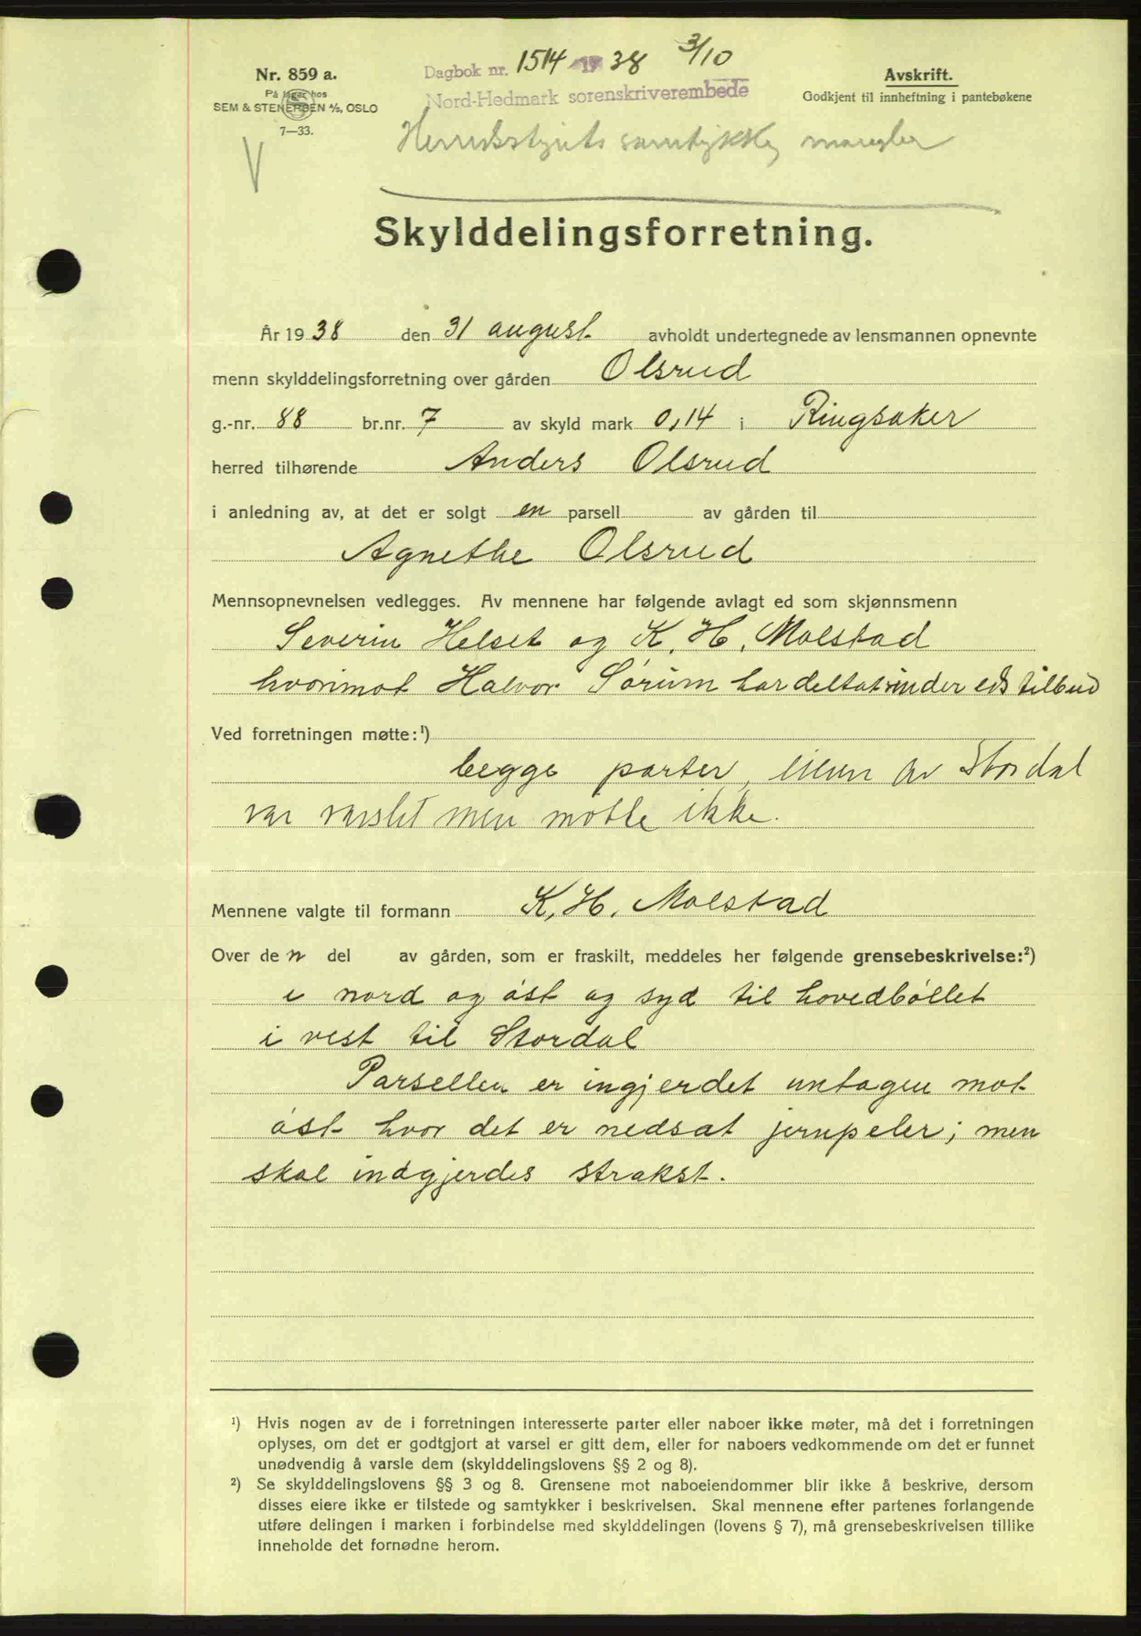 Nr. 859 a.
På lager hos
SEM & STENERSEN A/S, OSLO
7—33.
Dagbok nr. 1514 1938 3/10
Nord-Hedmark sorenskriverembede
Avskrift.
Godkjent til innheftning i pantebøkene
Herredsstyrets samtykke mangler
Skylddelingsforretning.
År 1938 den 31 august avholdt undertegnede av lensmannen opnevnte
menn skylddelingsforretning over gården Olsrud
g.-nr. 88 br.nr. 7 av skyld mark 0,14 i Ringsaker
herred tilhørende Anders Olsrud
i anledning av, at det er solgt en parsell av gården til
Agnethe Olsrud
Mennsopnevnelsen vedlegges. Av mennene har følgende avlagt ed som skjønnsmenn
Severin Helset og K. H. Molstad
hvorimot Halvor Sørum har deltat under eds tilbud
Ved forretningen møtte:¹)
begge parter, eieren av Stordal
var varslet men møtte ikke.
Mennene valgte til formann K. H. Molstad
Over den del av gården, som er fraskilt, meddeles her følgende grensebeskrivelse:²)
i nord og øst og syd til hovedbøllet
i vest til Stordal
Parsellen er ingjerdet untagen mot
øst hvor det er nedsat jernpeler; men
skal indgjerdes strakst.
¹) Hvis nogen av de i forretningen interesserte parter eller naboer ikke møter, må det i forretningen
oplyses, om det er godtgjort at varsel er gitt dem, eller for naboers vedkommende om det er funnet
unødvendig å varsle dem (skylddelingslovens §§ 2 og 8).
²) Se skylddelingslovens §§ 3 og 8. Grensene mot naboeiendommer blir ikke å beskrive, dersom
disses eiere ikke er tilstede og samtykker i beskrivelsen. Skal mennene efter partenes forlangende
utføre delingen i marken i forbindelse med skylddelingen (lovens § 7), må grensebeskrivelsen tillike
inneholde det fornødne herom.